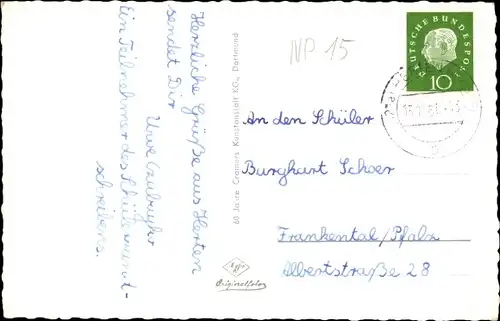 Herzliche Grüße aus Herten
sendet Dir
Uwe
Ein Teilnehmer des
schreibens.
60 Jahre Cramers Kunstanstalt KG., Dortmund
Originalfoto
NP 15
DEUTSCHE BUNDESPOST
10
An den Schüler
Burghart Schoer
Frankental/Pfalz
Albertstraße 28